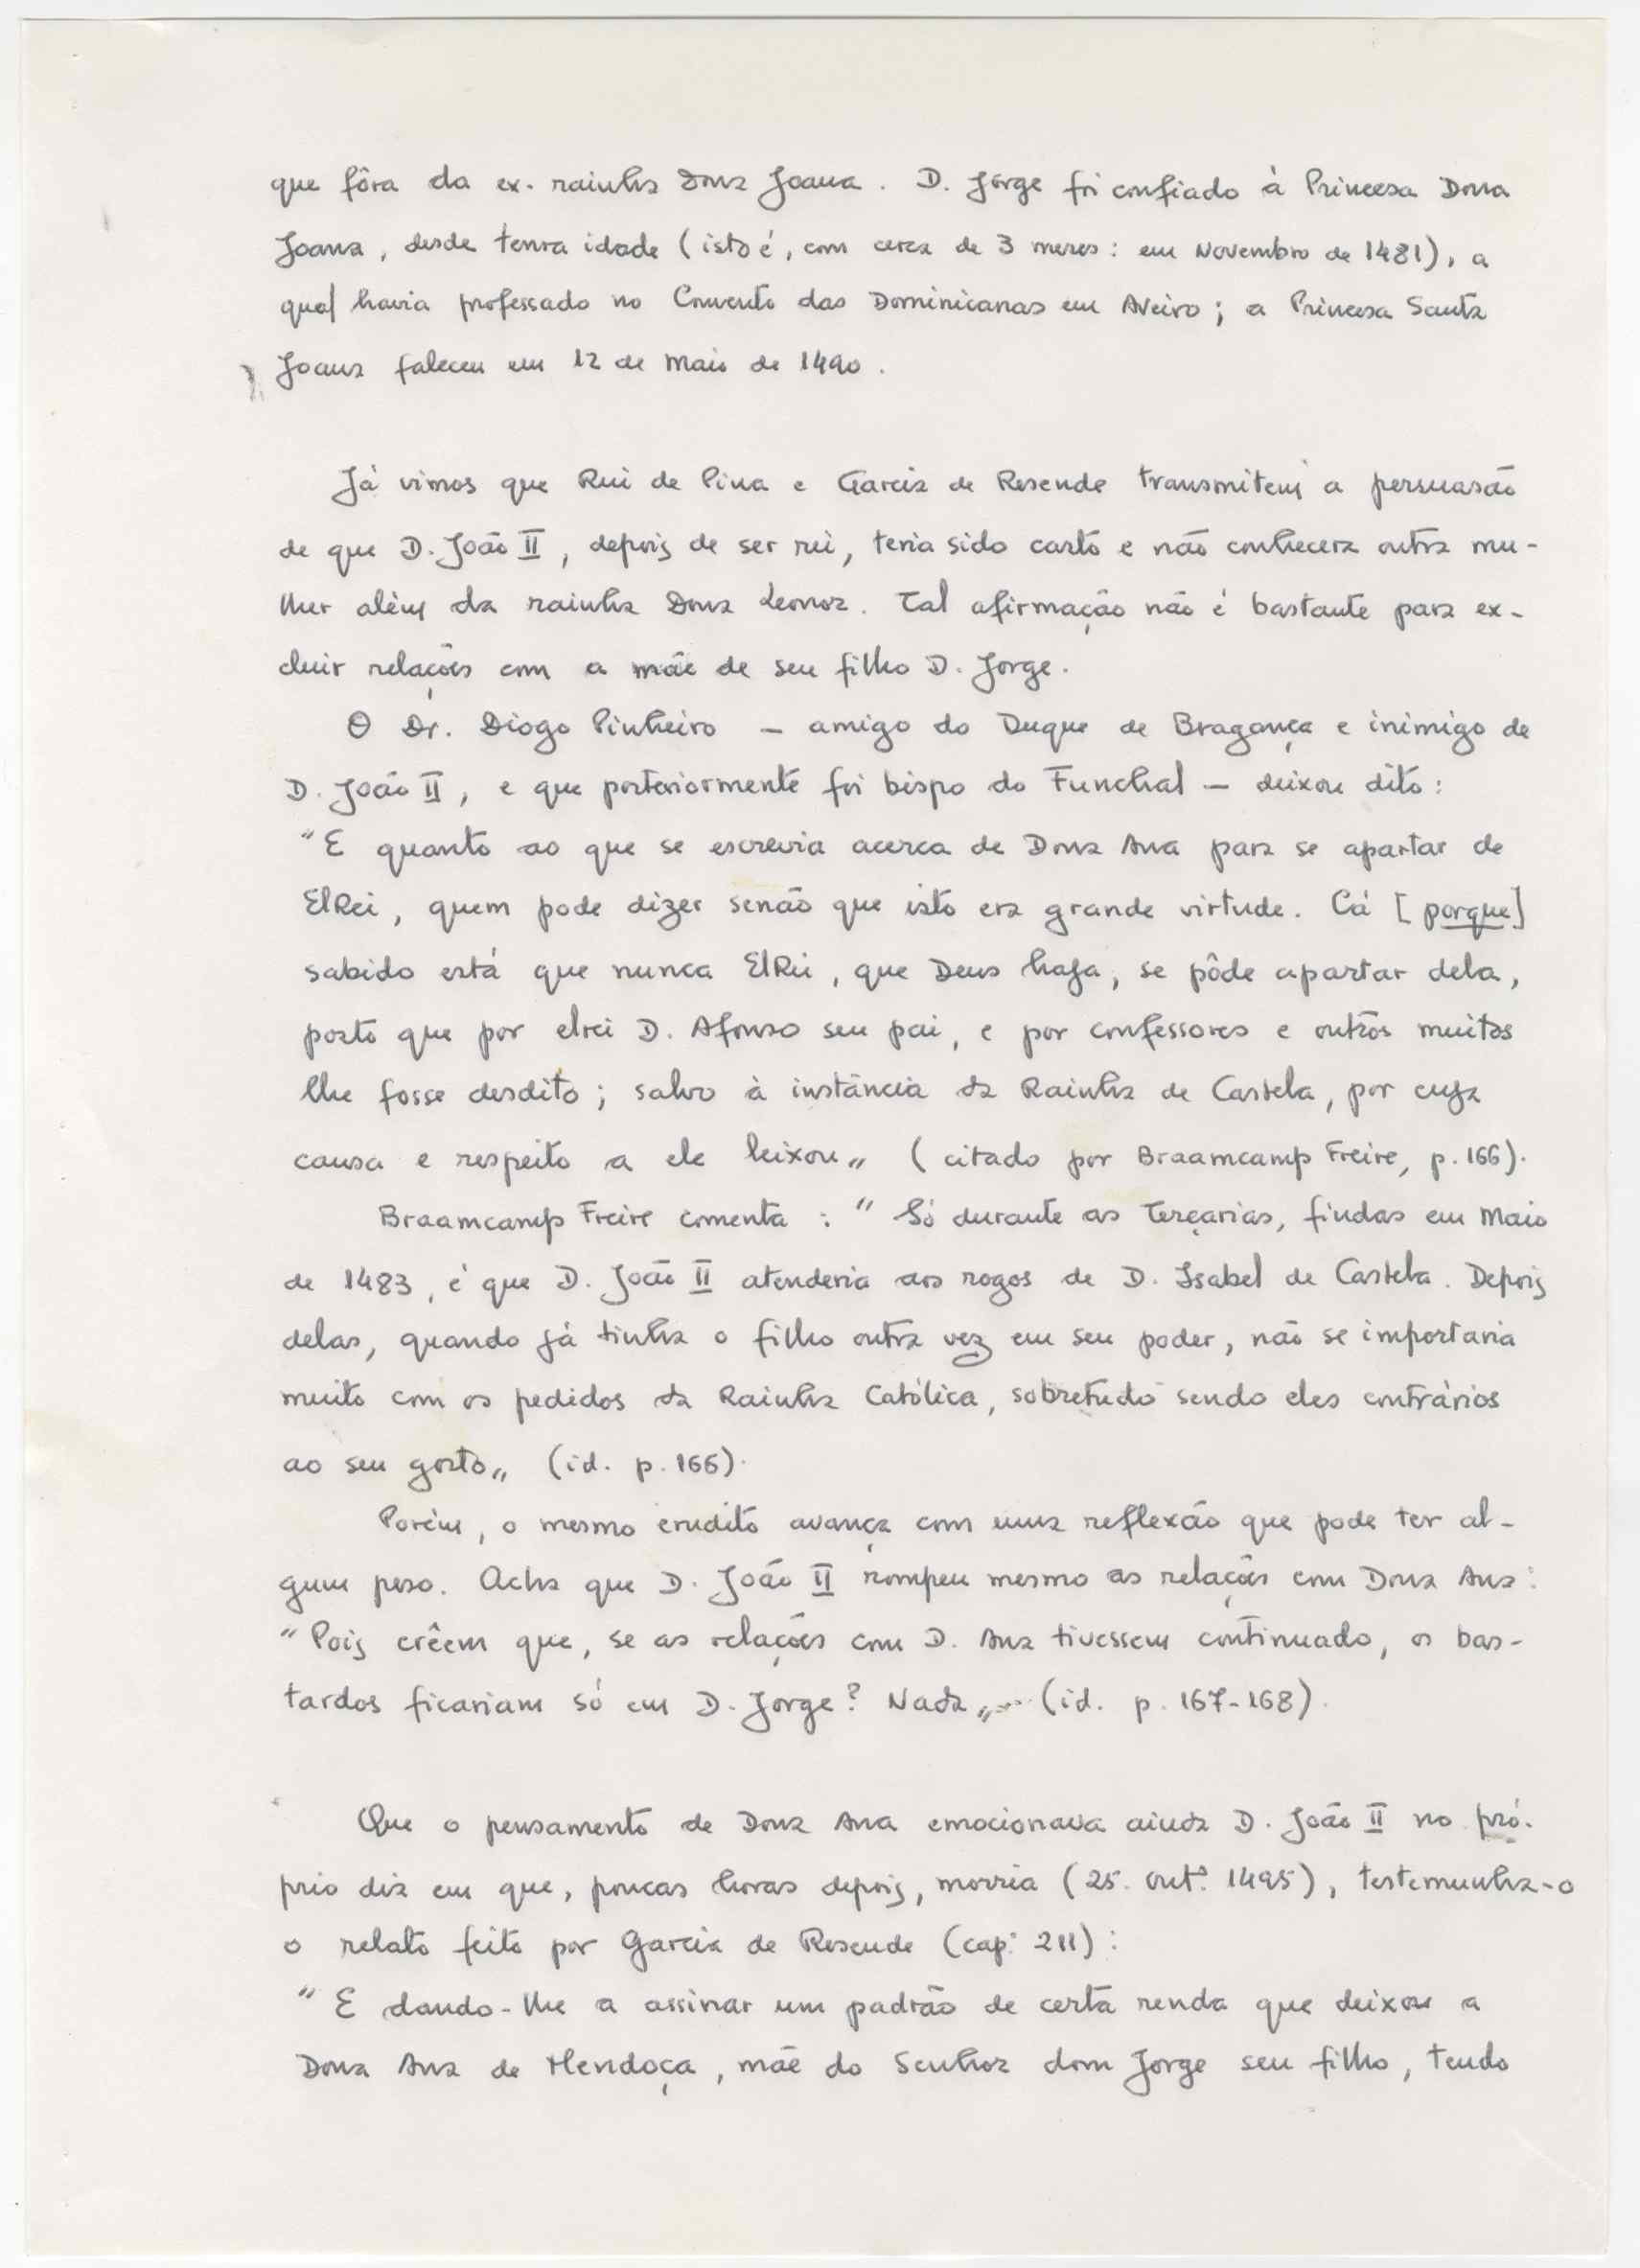 que fôra da ex-rainha Dona Joana. D. Jorge foi confiado à Princesa Dona
Joana, desde tenra idade (isto é, com cerca de 3 meses: em Novembro de 1481), a
qual havia professado no Convento das Dominicanas em Aveiro; a Princesa Santa
Joana faleceu em 12 de Maio de 1490.
Já vimos que Rui de Pina e Garcia de Resende transmitem a persuasão
de que D. João II, depois de ser rei, teria sido casto e não conhecera outra mu-
lher além da rainha Dona Leonor. Tal afirmação não é bastante para ex-
cluir relações com a mãe de seu filho D. Jorge.
O Dr. Diogo Pinheiro — amigo do Duque de Bragança e inimigo de
D. João II, e que posteriormente foi bispo do Funchal — deixou dito:
"E quanto ao que se escrevia acerca de Dona Ana para se apartar de
ElRei, quem pode dizer senão que isto era grande virtude. Cá [porque]
sabido está que nunca ElRei, que Deus haja, se pôde apartar dela,
posto que por elrei D. Afonso seu pai, e por confessores e outros muitos
lhe fosse desdito; salvo à instância da Rainha de Castela, por cuja
causa e respeito a ele leixou" (citado por Braamcamp Freire, p. 166).
Braamcamp Freire comenta: "Só durante as Terçarias, findas em Maio
de 1483, é que D. João II atenderia aos rogos de D. Isabel de Castela. Depois
delas, quando já tinha o filho outra vez em seu poder, não se importaria
muito com os pedidos da Rainha Católica, sobretudo sendo eles contrários
ao seu gosto" (id. p. 166).
Porém, o mesmo erudito avança com uma reflexão que pode ter al-
gum peso. Acha que D. João II rompeu mesmo as relações com Dona Ana:
"Pois crêem que, se as relações com D. Ana tivessem continuado, os bas-
tardos ficariam só em D. Jorge? Nada" (id. p. 167-168).
Que o pensamento de Dona Ana emocionava ainda D. João II no pró-
prio dia em que, poucas horas depois, morria (25. outº 1495), testemunha-o
o relato feito por Garcia de Resende (cap. 211):
"E dando-lhe a assinar um padrão de certa renda que deixou a
Dona Ana de Mendoça, mãe do Senhor dom Jorge seu filho, tendo